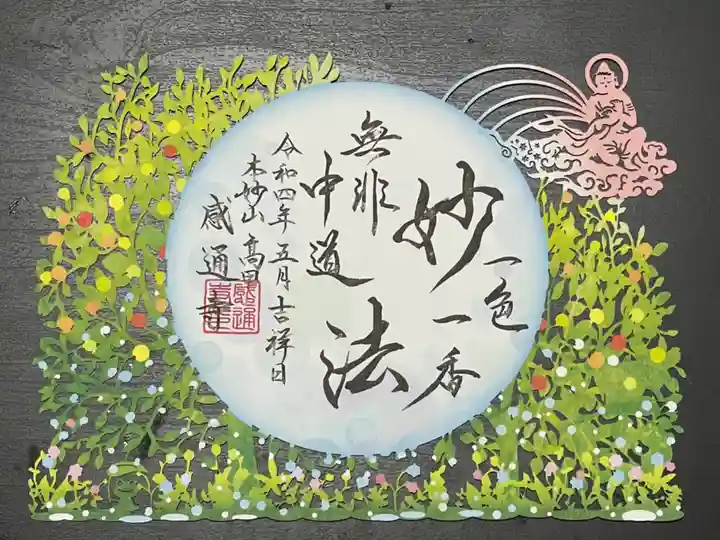 一色一香
妙法
無非中道
令和四年五月吉祥日
本妙山高田
感通寺
感通寺